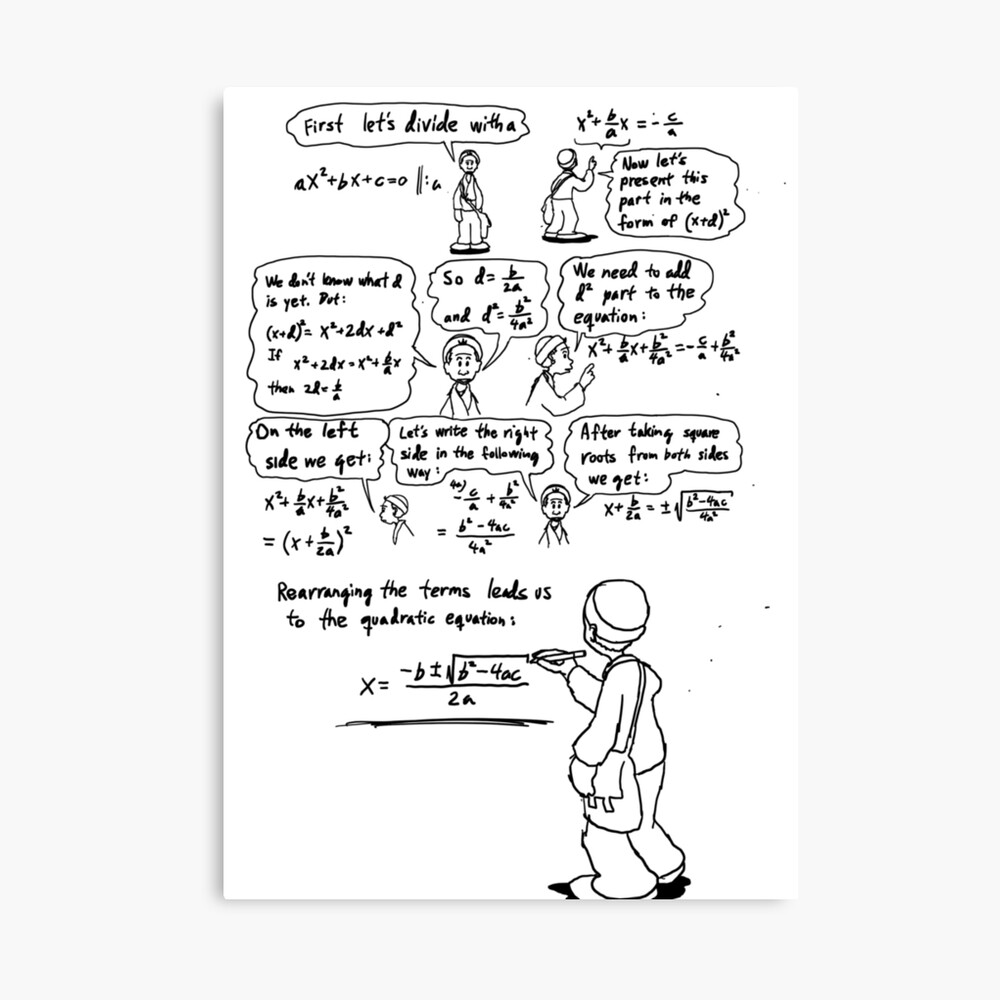 First let's divide with a
ax²+bx+c=0 ||:a
x²+b/a x = -c/a
Now let's
present this
part in the
form of (x+d)²
We don't know what d
is yet. But:
(x+d)² = x²+2dx+d²
If x²+2dx=x²+b/a x
then 2d=b/a
So d=b/2a
and d²=b²/4a²
We need to add
d² part to the
equation:
x²+b/a x+b²/4a²=-c/a+b²/4a²
On the left
side we get:
x²+b/a x+b²/4a²
=(x+b/2a)²
Let's write the right
side in the following
way:
4a) -c/a + b²/4a²
= b²-4ac/4a²
After taking square
roots from both sides
we get:
x+b/2a=±√b²-4ac/4a²
Rearranging the terms leads us
to the quadratic equation:
x= -b±√b²-4ac/2a